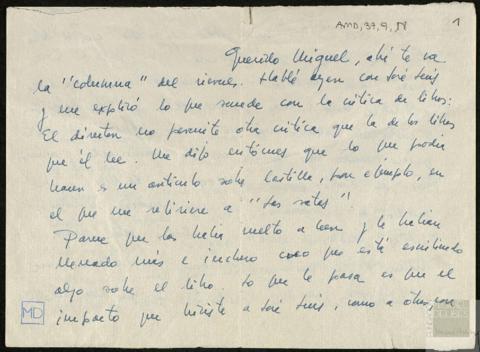 AMD, 37, 9, 1
Querido Miguel, ahí te va
la "columna" del viernes. Hablé ayer con José Luis
y me explicó lo que sucede con la crítica de libros:
El director no permite otra crítica que la de los libros
que él lee. Me dijo entonces que lo que podía
hacer es un artículo sobre Castilla, por ejemplo, en
el que me refiriera a "Las ratas".
Parece que las había vuelto a leer y le habían
llenado más e incluso creo que está escribiendo
algo sobre el libro. Lo que le pasa es que el
impacto que hiciste a José Luis, como a otros, con
MD
DELIBES